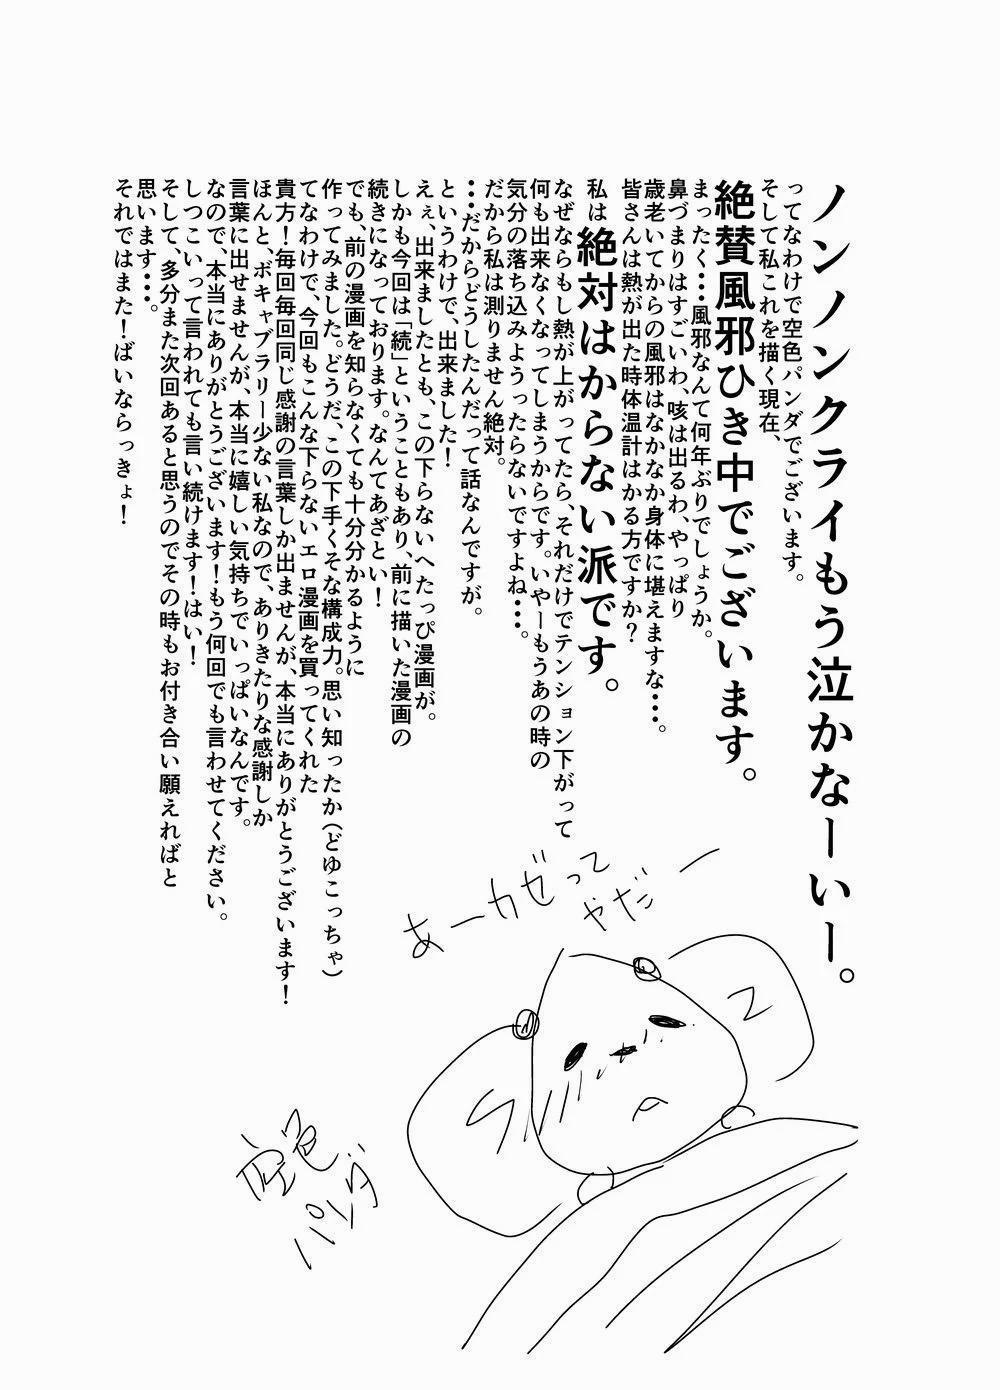 ノンノンクライもう泣かなーいー。
ってなわけで空色パンダでございます。
そして私これを描く現在、
絶賛風邪ひき中でございます。
まったく・・・風邪なんて何年ぶりでしょうか。
鼻づまりはすごいわ、咳は出るわ、やっぱり
歳老いてからの風邪はなかなか身体に堪えますな・・・。
皆さんは熱が出た時体温計はかる方ですか?
私は絶対はからない派です。
なぜならもし熱が上がってたら、それだけでテンション下がって
何も出来なくなってしまうからです。いやーもうあの時の
気分の落ち込みようったらないですよね・・・。
だから私は測りません絶対。
・・だからどうしたんだって話なんですが。
というわけで、出来ました!
えぇ、出来ましたとも、この下らないへたっぴ漫画が。
しかも今回は「続」ということもあり、前に描いた漫画の
続きになっております。なんてあざとい!
でも、前の漫画を知らなくても十分分かるように
作ってみました。どうだ、この下手くそな構成力。思い知ったか(どゆこっちゃ)
てなわけで、今回もこんな下らないエロ漫画を買ってくれた
貴方!毎回毎回同じ感謝の言葉しか出ませんが、本当にありがとうございます!
ほんと、ボキャブラリー少ない私なので、ありきたりな感謝しか
言葉に出せませんが、本当に嬉しい気持ちでいっぱいなんです。
なので、本当にありがとうございます!もう何回でも言わせてください。
しつこいって言われても言い続けます!はい!
そして、多分また次回あると思うのでその時もお付き合い願えればと
思います・・・。
それではまた!ばいならっきょ!
あーカゼって
やだー
空色
パンダ